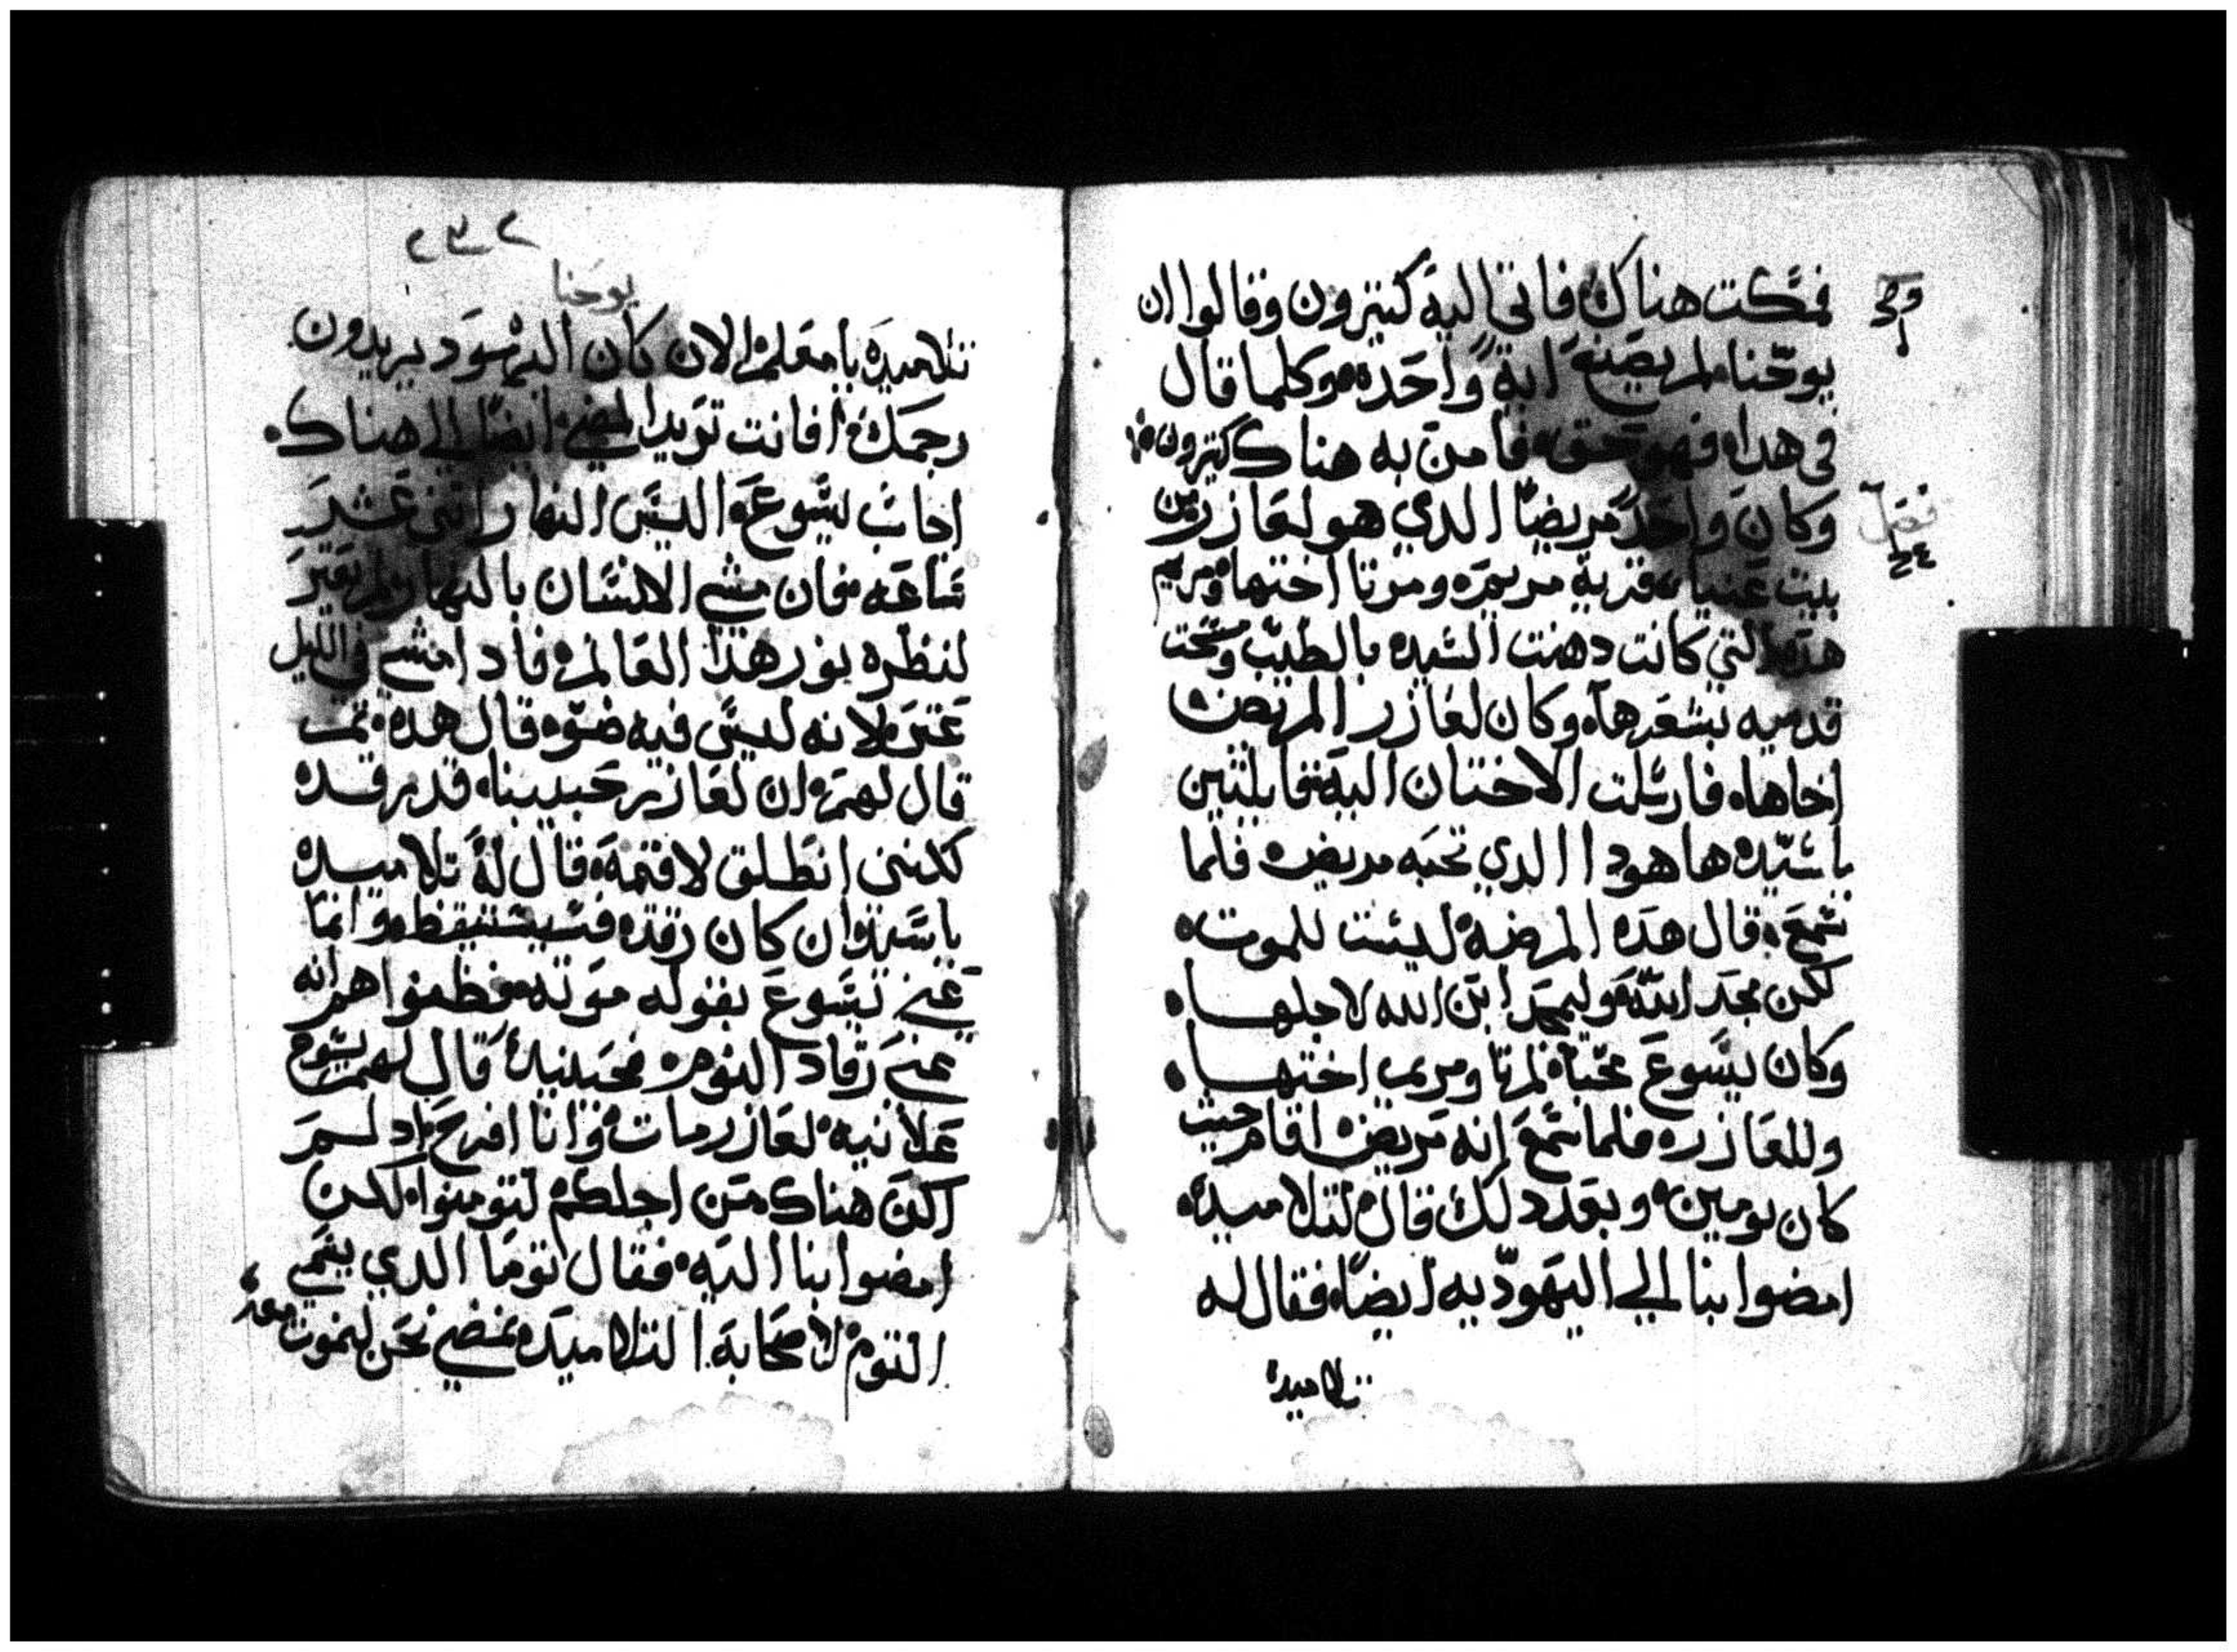 فمكت هناك فاتي اليه كتيرون وقالوا ان
يوحنا لم يصنع اية واحده وكلما قال
في هدا فهو حق فامن به هناك كتيرون
فصل
وكان واحد مريضا الدي هو لعازر من
بيت عنيا قرية مريم ومرتا اختها ومريم
هده التي كانت دهنت السيد بالطيب ومسحت
قدميه بشعرها وكان لعازر المريض
اخاها فارسلت الاختان اليه قايلتين
ياسيد ها هودا الدي تحبه مريض فلما
سمع قال هده المرضة ليست للموت
لكن لمجد الله وليمجد ابن الله لاجلها
وكان يسوع محبا لمرتا ومريم اختها
وللعازر فلما سمع انه مريض اقام حيث
كان يومين وبعد دلك قال لتلاميده
امضوا بنا الي اليهوديه ايضا فقال له
تلاميده
يوحنا
تلاميده يا معلم الان كان اليهود يريدون
رجمك افانت تريد المضي ايضا الي هناك
اجاب يسوع اليس النهار اتني عشر
ساعه فان مشي الانسان بالنهار لم يعتر
لنظره نور هدا العالم فادا مشي في الليل
عتر لانه ليس فيه ضو قال هده تم
قال لهم ان لعازر حبيبنا قد رقد
لكنني انطلق لاقيمه قال له تلاميده
ياسيد ان كان رقد فسيستيقظ وانما
عني يسوع بقوله موته فظنوا هم انه
عني رقاد النوم فحينيد قال لهم يسوع
علانيه لعازر مات وانا افرح اد لم
اكن هناك من اجلكم لتومنوا لكن
امضوا بنا اليه فقال توما الدي يسمي
التوم لاصحابه التلاميد نمضي نحن لنموت معه